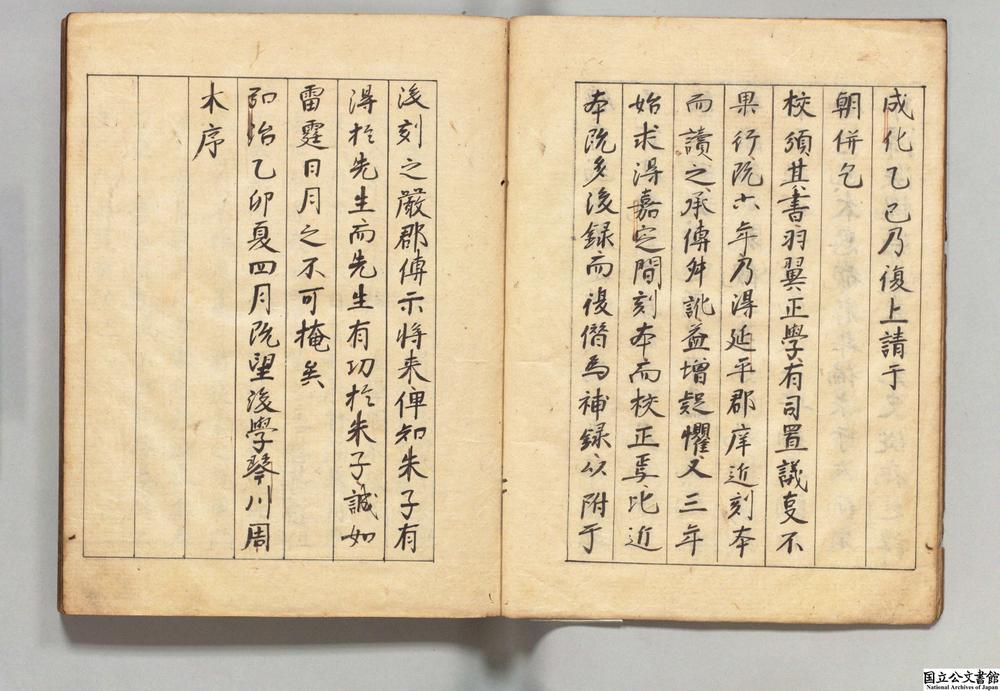 成化乙巳乃復上請于
朝併乞
校頒其書羽翼正學有司置議㪅不
果行既六年乃得延平郡庠近刻本
而讀之承傳舛訛益增疑懼又三年
始求得嘉定間刻本而校正焉比近
本既多後録而復僭爲補録以附于
後刻之嚴郡傳示將来俾知朱子有
淂於先生而先生有功於朱子誠如
雷霆日月之不可掩矣
弘治乙卯夏四月既望後學琴川周
木序
国立公文書館
National Archives of Japan